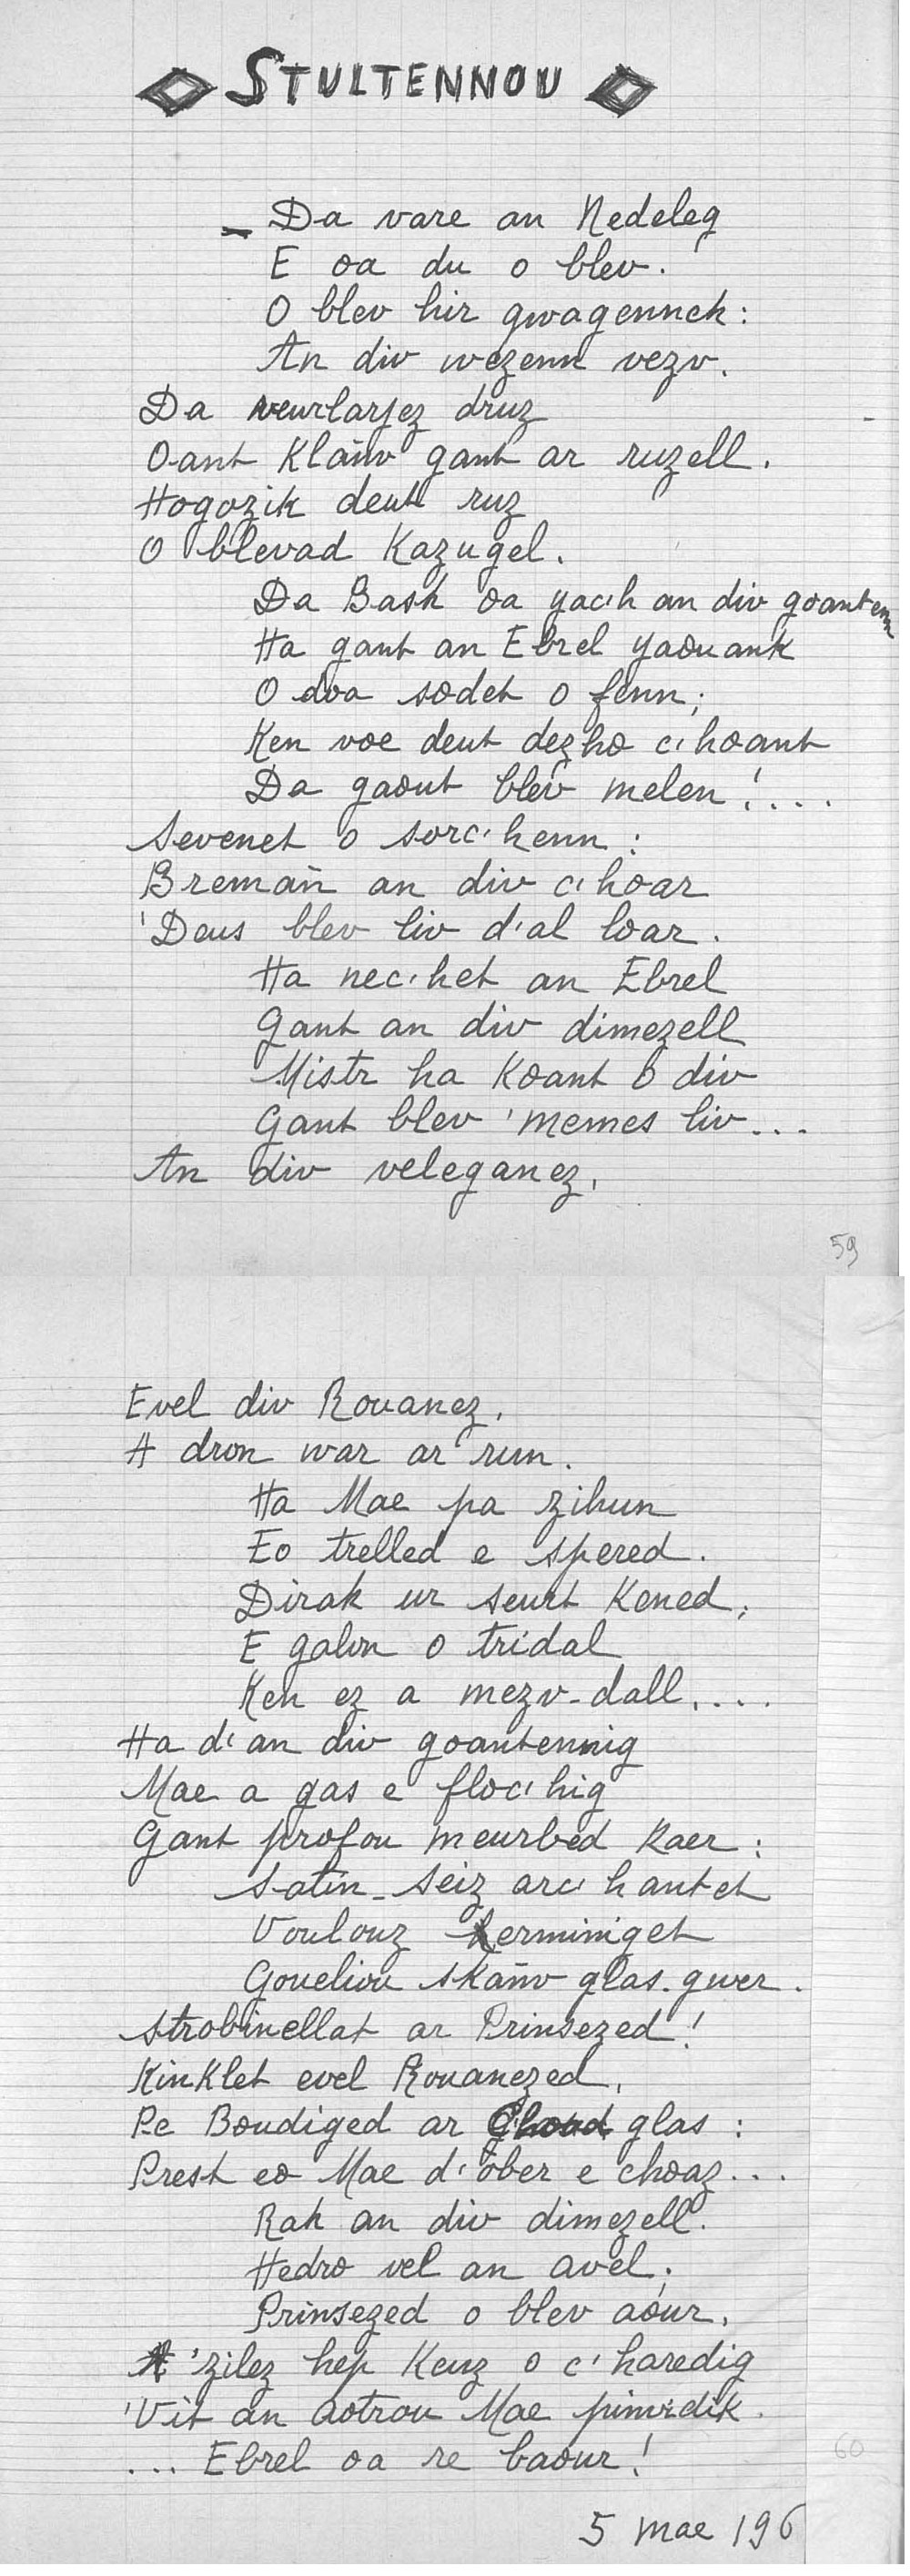 STULTENNOU
– Da vare an Nedeleg
E oa du o blev.
O blev hir gwagennek :
An div wezenn vezv.
Da veurlarjez druz
Oant klañv gant ar ruzell.
Hogozik deut ruz
O blevad kazugel.
Da Bask oa yac'h an div goantenn
Ha gant an Ebrel yaouank
O doa sodet o fenn ;
Ken voe deut dezho c'hoant
Da gaout blev melen !...
Sevenet o sorc'henn :
Bremañ an div c'hoar
'Deus blev liv d'al loar.
Ha nec'het an Ebrel
Gant an div dimezell
Mistr ha koant o div
Gant blev 'memes liv...
An div veleganez,
59
Evel div Rouanez,
A dron war ar run.
Ha Mae pa zihun
Eo trelled e spered.
Dirak ur seurt kened,
E galon o tridal
Ken ez a mezv-dall....
Ha d'an div goantennig
Mae a gas e floc'hig
Gant profou meurbed kaer :
Satin-seiz arc'hantet
Voulouz herminiget
Goueliou skañv glas-gwer.
Strobinellat ar Prinsezed !
Kinklet evel Rouanezed,
Pe Boudiged ar glas :
Prest eo Mae d'ober e choaz...
Rak an div dimezell.
Hedro vel an avel ;
Prinsezed o blev aour,
'zilez hep keuz o c'haredig
'Vit an aotrou Mae pinvidik.
... Ebrel oa re baour !
60
5 mae 196